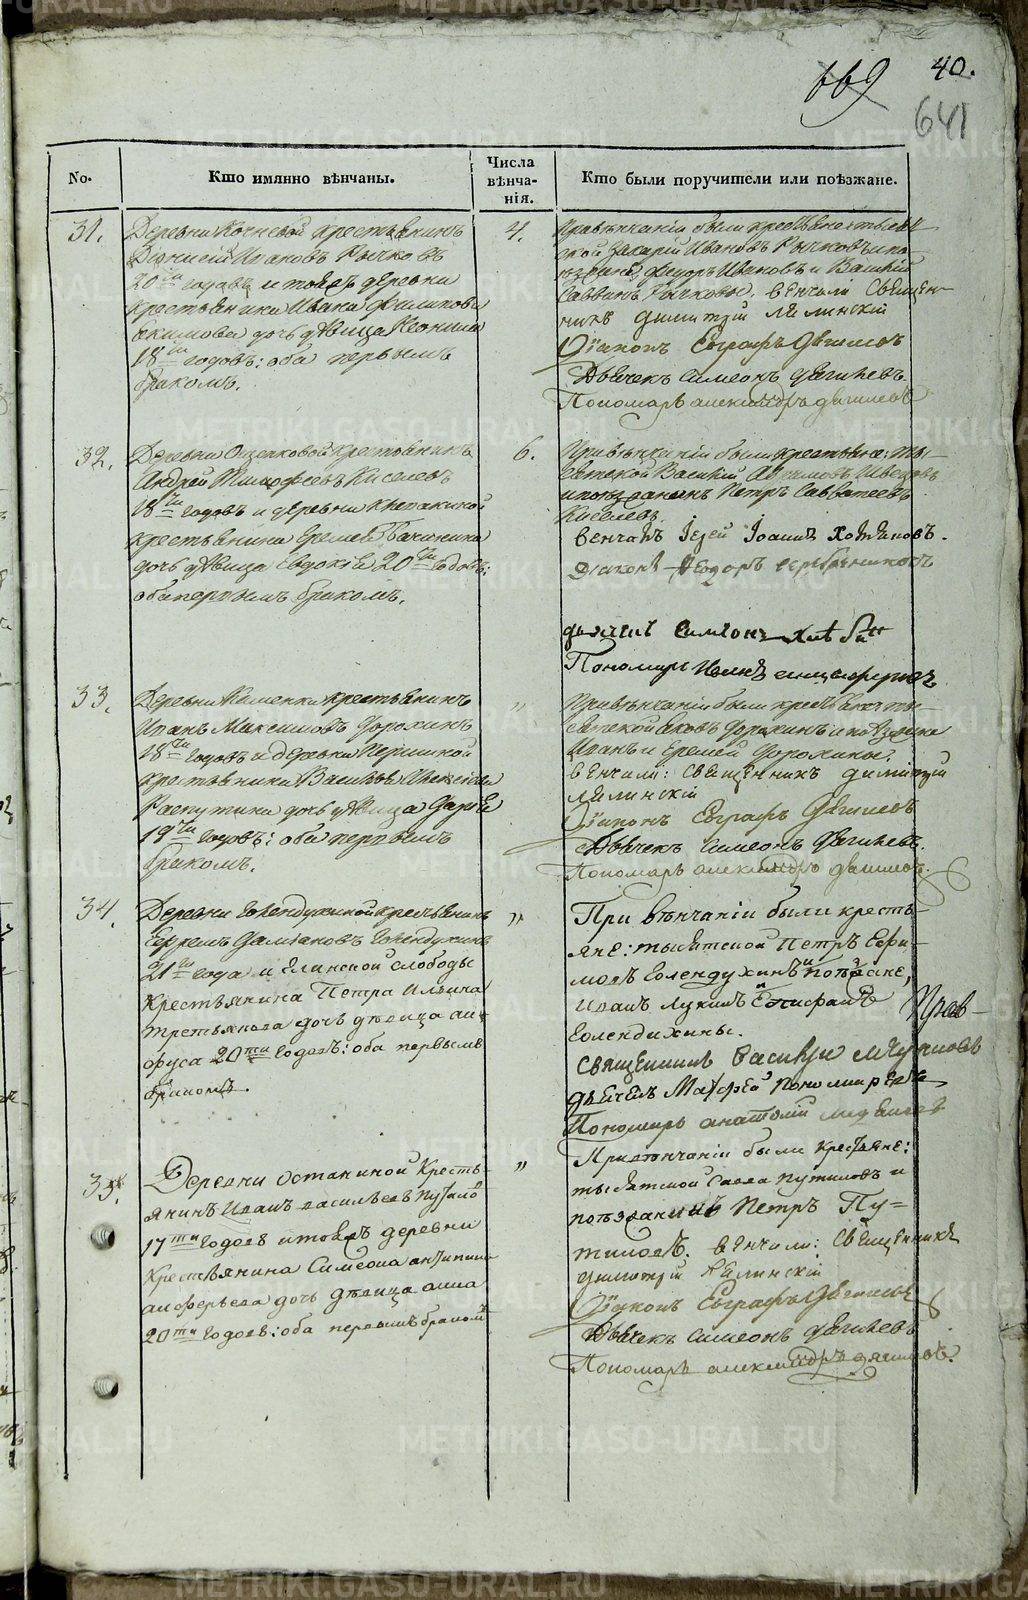 669
40.
641
No.
Кто имянно вѣнчаны.
Числа
вѣнча-
нія.
Кто были поручители или поѣзжане.
31.
Деревни Кочневой крестьянинъ
Дионисій Ивановъ Рычковъ
20ти годовъ и тояжъ деревни
крестьянина Ивана Филипова
Акимова дочь дѣвица Неонила
18ти годовъ: оба первымъ
бракомъ.
4.
При вѣнчаніи были крестьяне: тысяц-
кой Захарій Ивановъ Рычковъ и по-
ѣзжане Федоръ Ивановъ и Василій
Саввинъ Рычковы. Венчали Священ-
никъ Димитрій Ляпинскій
Діаконъ Евграфъ
Дьячекъ Симеонъ Дягилевъ
Пономарь Александръ
32.
Деревни крестьянинъ
Андрей Тимофеевъ Киселевъ
18ти годовъ и деревни
крестьянина Еремея
дочь дѣвица Евдокія 20ти годовъ:
оба первымъ бракомъ.
6.
При вѣнчаніи были крестьяне: ты-
сятской Василій Абрамовъ Швецовъ
и поѣзжанинъ Петръ Савватеевъ
Киселевъ.
Венчалъ Іерей Іоаннъ Хотяновъ.
Діаконъ Феодоръ Серебренниковъ
Дьячекъ Симеонъ
Пономарь Иванъ
33.
Деревни Каменки крестьянинъ
Иванъ Максимовъ Дорохинъ
18ти годовъ и деревни Першиной
крестьянина Василья
Распутина дочь дѣвица Дарья
19ти годовъ: оба первымъ
бракомъ.
"
При вѣнчаніи были крестьяне: ты-
сятской Яковъ Дорохинъ и поѣзжане
Иванъ и Еремей Дорохины.
Венчали: Священникъ Димитрій
Ляпинскій
Діаконъ Евграфъ
Дьячекъ Симеонъ Дягилевъ.
Пономарь Александръ
34.
Деревни Голендухиной крестьянинъ
Ефремъ Даміановъ Голендухинъ
21го года и Глинской слободы
крестьянина Петра Ильина
Третьякова дочь дѣвица Ан-
фуса 20ти годовъ: оба первымъ
бракомъ.
"
При вѣнчаніи были кресть-
яне: тысятской Петръ Ефи-
мовъ Голендухинъ и поѣзжане,
Иванъ Лукинъ и Епифанъ
Голендихины.
Священникъ Василій
Дьячекъ Матфей Пономаревъ
Пономарь Анатолій
35.
Деревни Останиной кресть-
янинъ Иванъ Васильевъ Путило
17ти годовъ и тояжъ деревни
крестьянина Симеона Антипина
Алферьева дочь дѣвица Анна
20ти годовъ: оба первымъ бракомъ
"
При вѣнчаніи были крестьяне:
тысятской Савва Путиловъ и
поѣзжанинъ Петръ Пу-
тиловъ. Венчали: Священникъ
Димитрій Ляпинскій
Діаконъ Евграфъ
Дьячекъ Симеонъ Дягилевъ
Пономарь Александръ
METRIKI.GASO-URAL.RU